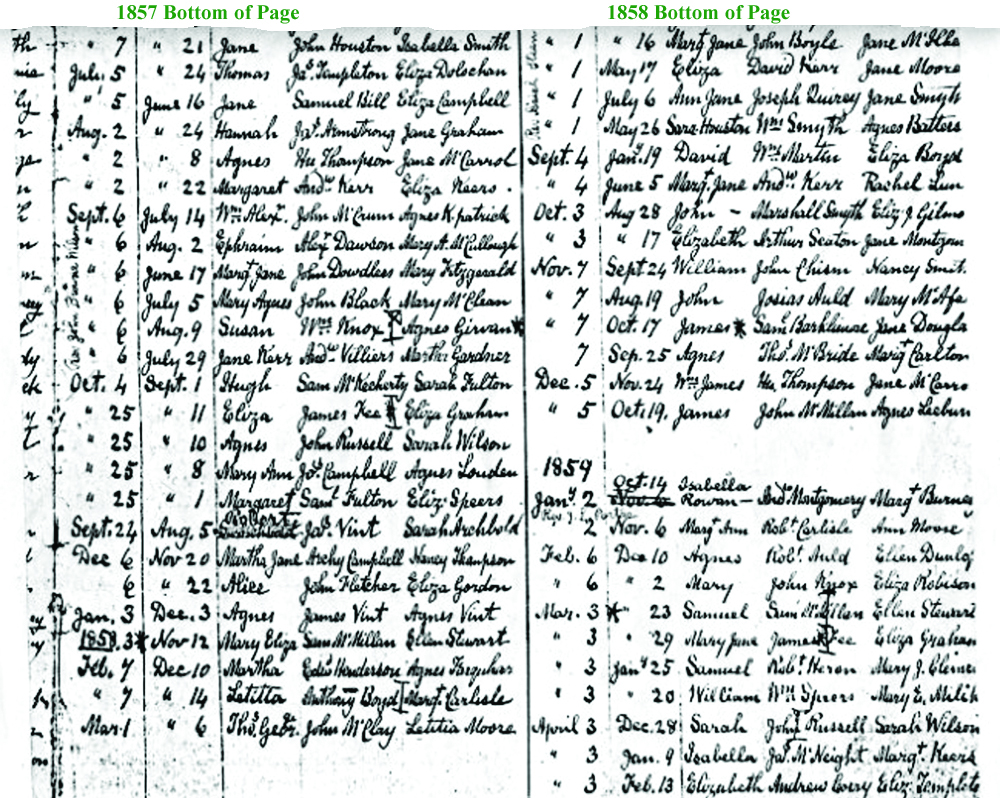 1857 Bottom of Page
th " 7 " 21 Jane John Houston Isabella Smith
July 5 " 24 Thomas Jas. Templeton Eliza Dolochan
ly " 5 June 16 Jane Samuel Bill Eliza Campbell
r Aug. 2 " 24 Hannah Jas. Armstrong Jane Graham
" 2 " 8 Agnes Hu Thompson Jane McCarrol
n " 2 " 22 Margaret Andw. Kerr Eliza Keers.
Sept. 6 July 14 Wm. Alexr. John McCrum Agnes Kpatrick
n " 6 Aug. 2 Ephraim Alexr Dawson Mary A. McCullough
m " 6 June 17 Margt Jane John Dowdless Mary Fitzgerald
" 6 July 5 Mary Agnes John Black Mary McClean
" 6 Aug. 9 Susan Wm. Knox Agnes Girvan *
dy " 6 July 29 Jane Kerr Andw. Villiers Martha Gardner
ck Oct. 4 Sept. 1 Hugh Sam McKecherty Sarah Fulton
y " 25 " 11 Eliza James Kee Eliza Graham
" 25 " 10 Agnes John Russell Sarah Wilson
r " 25 " 8 Mary Ann Jos. Campbell Agnes Louden
" 25 " 1 Margaret Saml. Fulton Eliz: Speers
Robert
Sept. 24 Aug. 5 Jas. Vint Sarah Archbold
Dec 6 Nov 20 Martha Jane Archy Campbell Nancy Thompson
6 " 22 Alice John Fletcher Eliza Gordon
ey Jan. 3 Dec. 3 Agnes James Vint Agnes Vint
y 1858. 3 * Nov 12 Mary Eliza Sam McMillan Ellen Stewart
Feb. 7 Dec 10 Martha Edwd Henderson Agnes Farquhar
" 7 " 14 Letitia Anthony Boyd Margt. Carlisle
Mar. 1 " 6 Thos. Geo. John McClay Letitia Moore
on
1858 Bottom of Page
" 1 " 16 Margt Jane John Boyle Jane McIlha
" 1 May 17 Eliza David Kerr Jane Moore
" 1 July 6 Ann Jane Joseph Quirey Jane Smyth
" 1 May 26 Sara Houston Wm Smyth Agnes Batters
Sept. 4 Jany. 19 David Wm. Martin Eliza Boyd
" 4 June 5 Margt. Jane Andw. Kerr Rachel Lun
Oct. 3 Aug 28 John - Marshall Smyth Eliz. J. Gilmo
" 3 " 17 Elizabeth Arthur Seaton Jane Montgom
Nov. 7 Sept 24 William John Chism Nancy Smit.
" 7 Aug. 19 John Josias Auld Mary McAfa
" 7 Oct. 17 James * Saml Barklimae Jane Dougla
7 Sep. 25 Agnes Thos. McBride Margt Carlton
Dec. 5 Nov. 24 Wm James Hu Thompson Jane McCarro
" 5 Oct. 19. James John McMillan Agnes Leebun
1859
Oct. 14 Isabella
Jany. 2 Rowan - Andw Montgomery Margt Burnes
2 Nov. 6 Margt Ann Robt Carlisle Ann Moore
Feb. 6 Dec 10 Agnes Robt. Auld Ellen Dunlop
" 6 " 2 Mary John Knox Eliza Robison
Mar. 3 * " 23 Samuel Sam McMillan Ellen Stewart
" 3 " 29 Mary Jane James Kee Eliza Graham
" 3 Jany 25 Samuel Robt. Heron Mary J. Clemen
" 3 " 20 William Wm Speers Mary E. Milik
April 3 Dec. 28 Sarah John Russell Sarah Wilson
" 3 Jan. 9 Isabella Jas. McNeight Margt. Keers
" 3 Feb. 13 Elizabeth Andrew Avery Eliz. Templeto